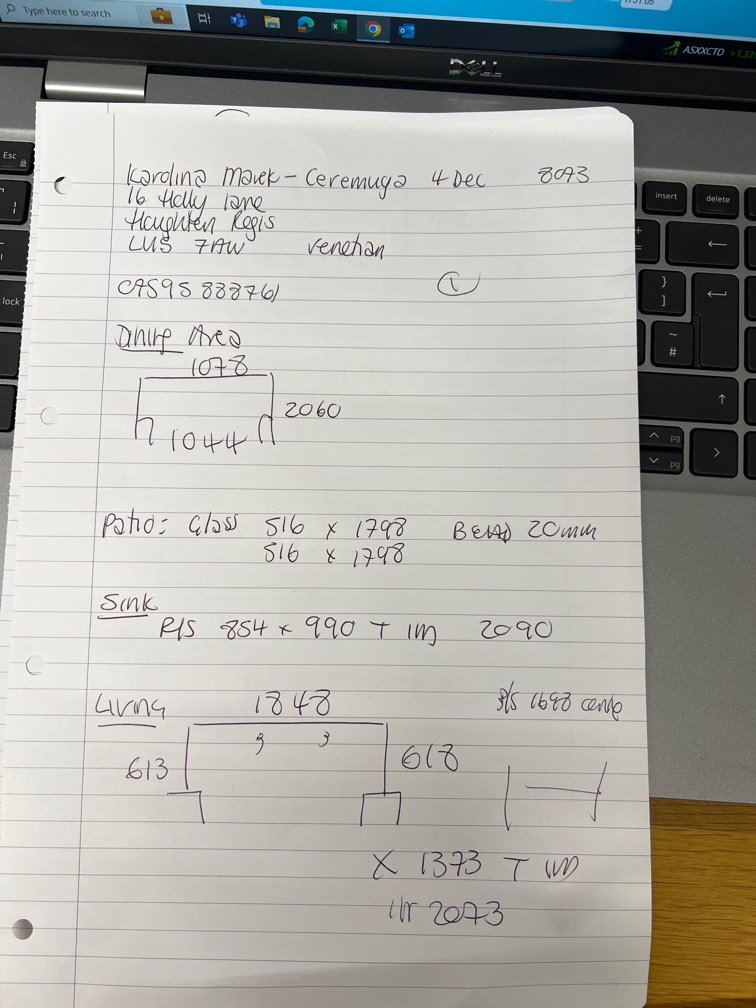 Type here to search
ASXXCTD +1.33
DELL
Esc
lock
insert
delete
pg
pg
Karolina Marek - Ceremuga 4 Dec 8093
16 Holly Lane
Houghten Regis
LU5 7AW Venetian
07595 888761
1
Dining Area
1078
2060
1044
Patio: Glass 516 x 1798 BEAD 20mm
516 x 1798
Sink
R/S 854 x 990 T 1M 2090
Living 1848
1698
613
618
x 1373 T 1M
2073